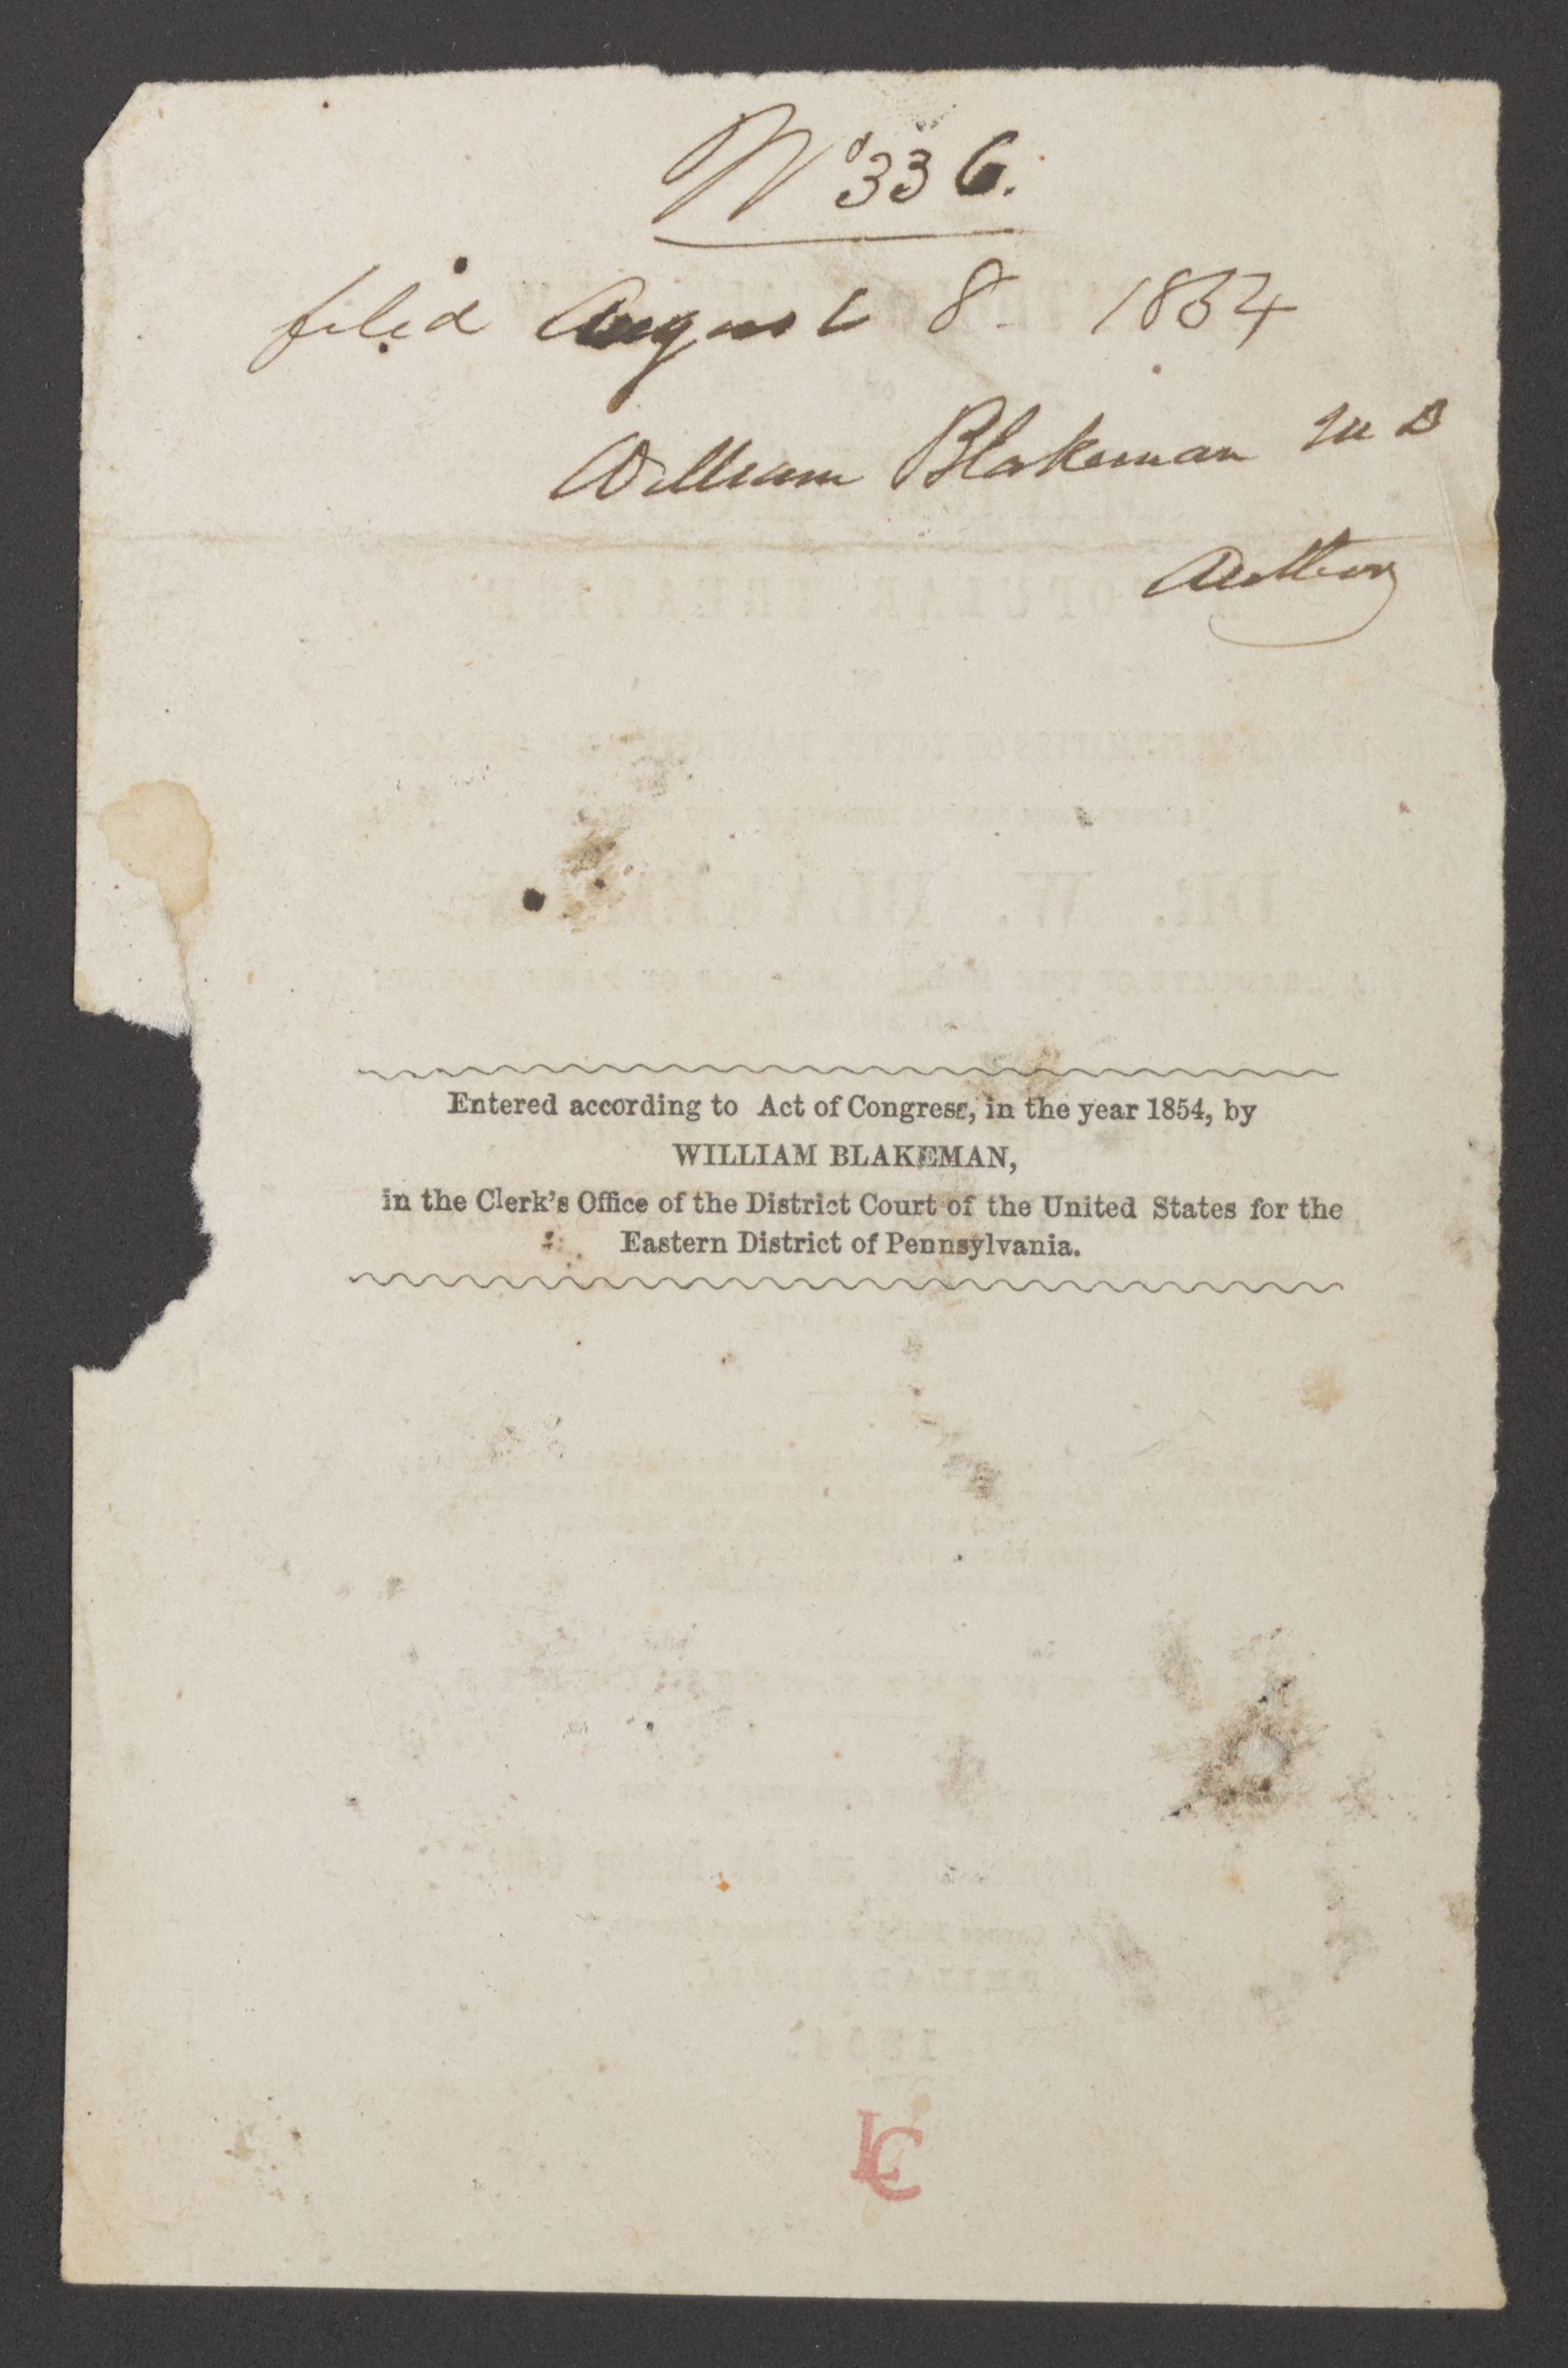 No 336.
filed August 8. 1854
William Blakeman M D
Author
Entered according to Act of Congress, in the year 1854, by
WILLIAM BLAKEMAN,
in the Clerk's Office of the District Court of the United States for the
Eastern District of Pennsylvania.
LC